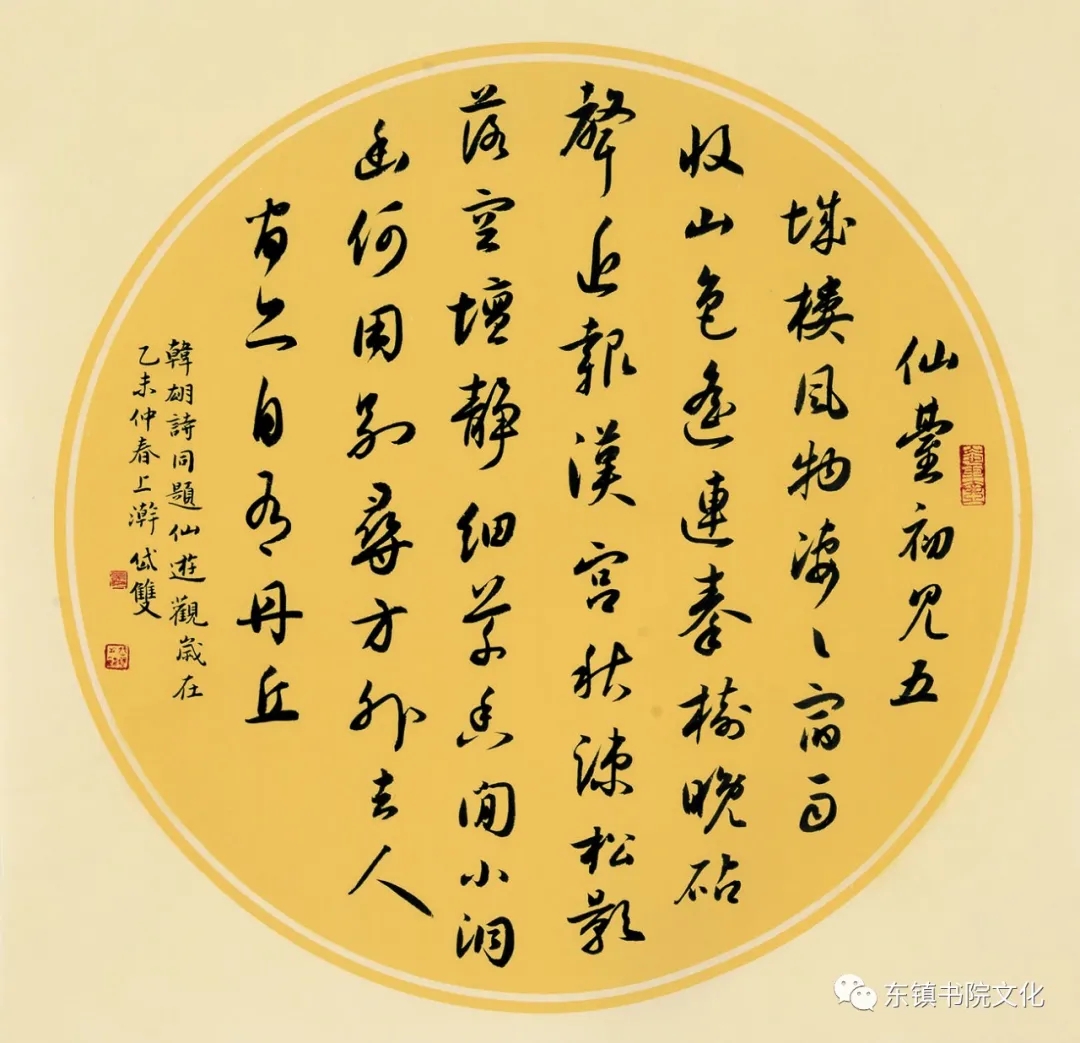 仙臺初見五
城樓風物淒〻宿雨
收山色遙連秦樹晚砧
聲近報漢宮秋疎松影
落空壇靜細草香閒小洞
幽何用別尋方外去人
間亦自有丹丘
韓翃詩同題仙遊觀歲在
乙未仲春上澣岱雙
东镇书院文化